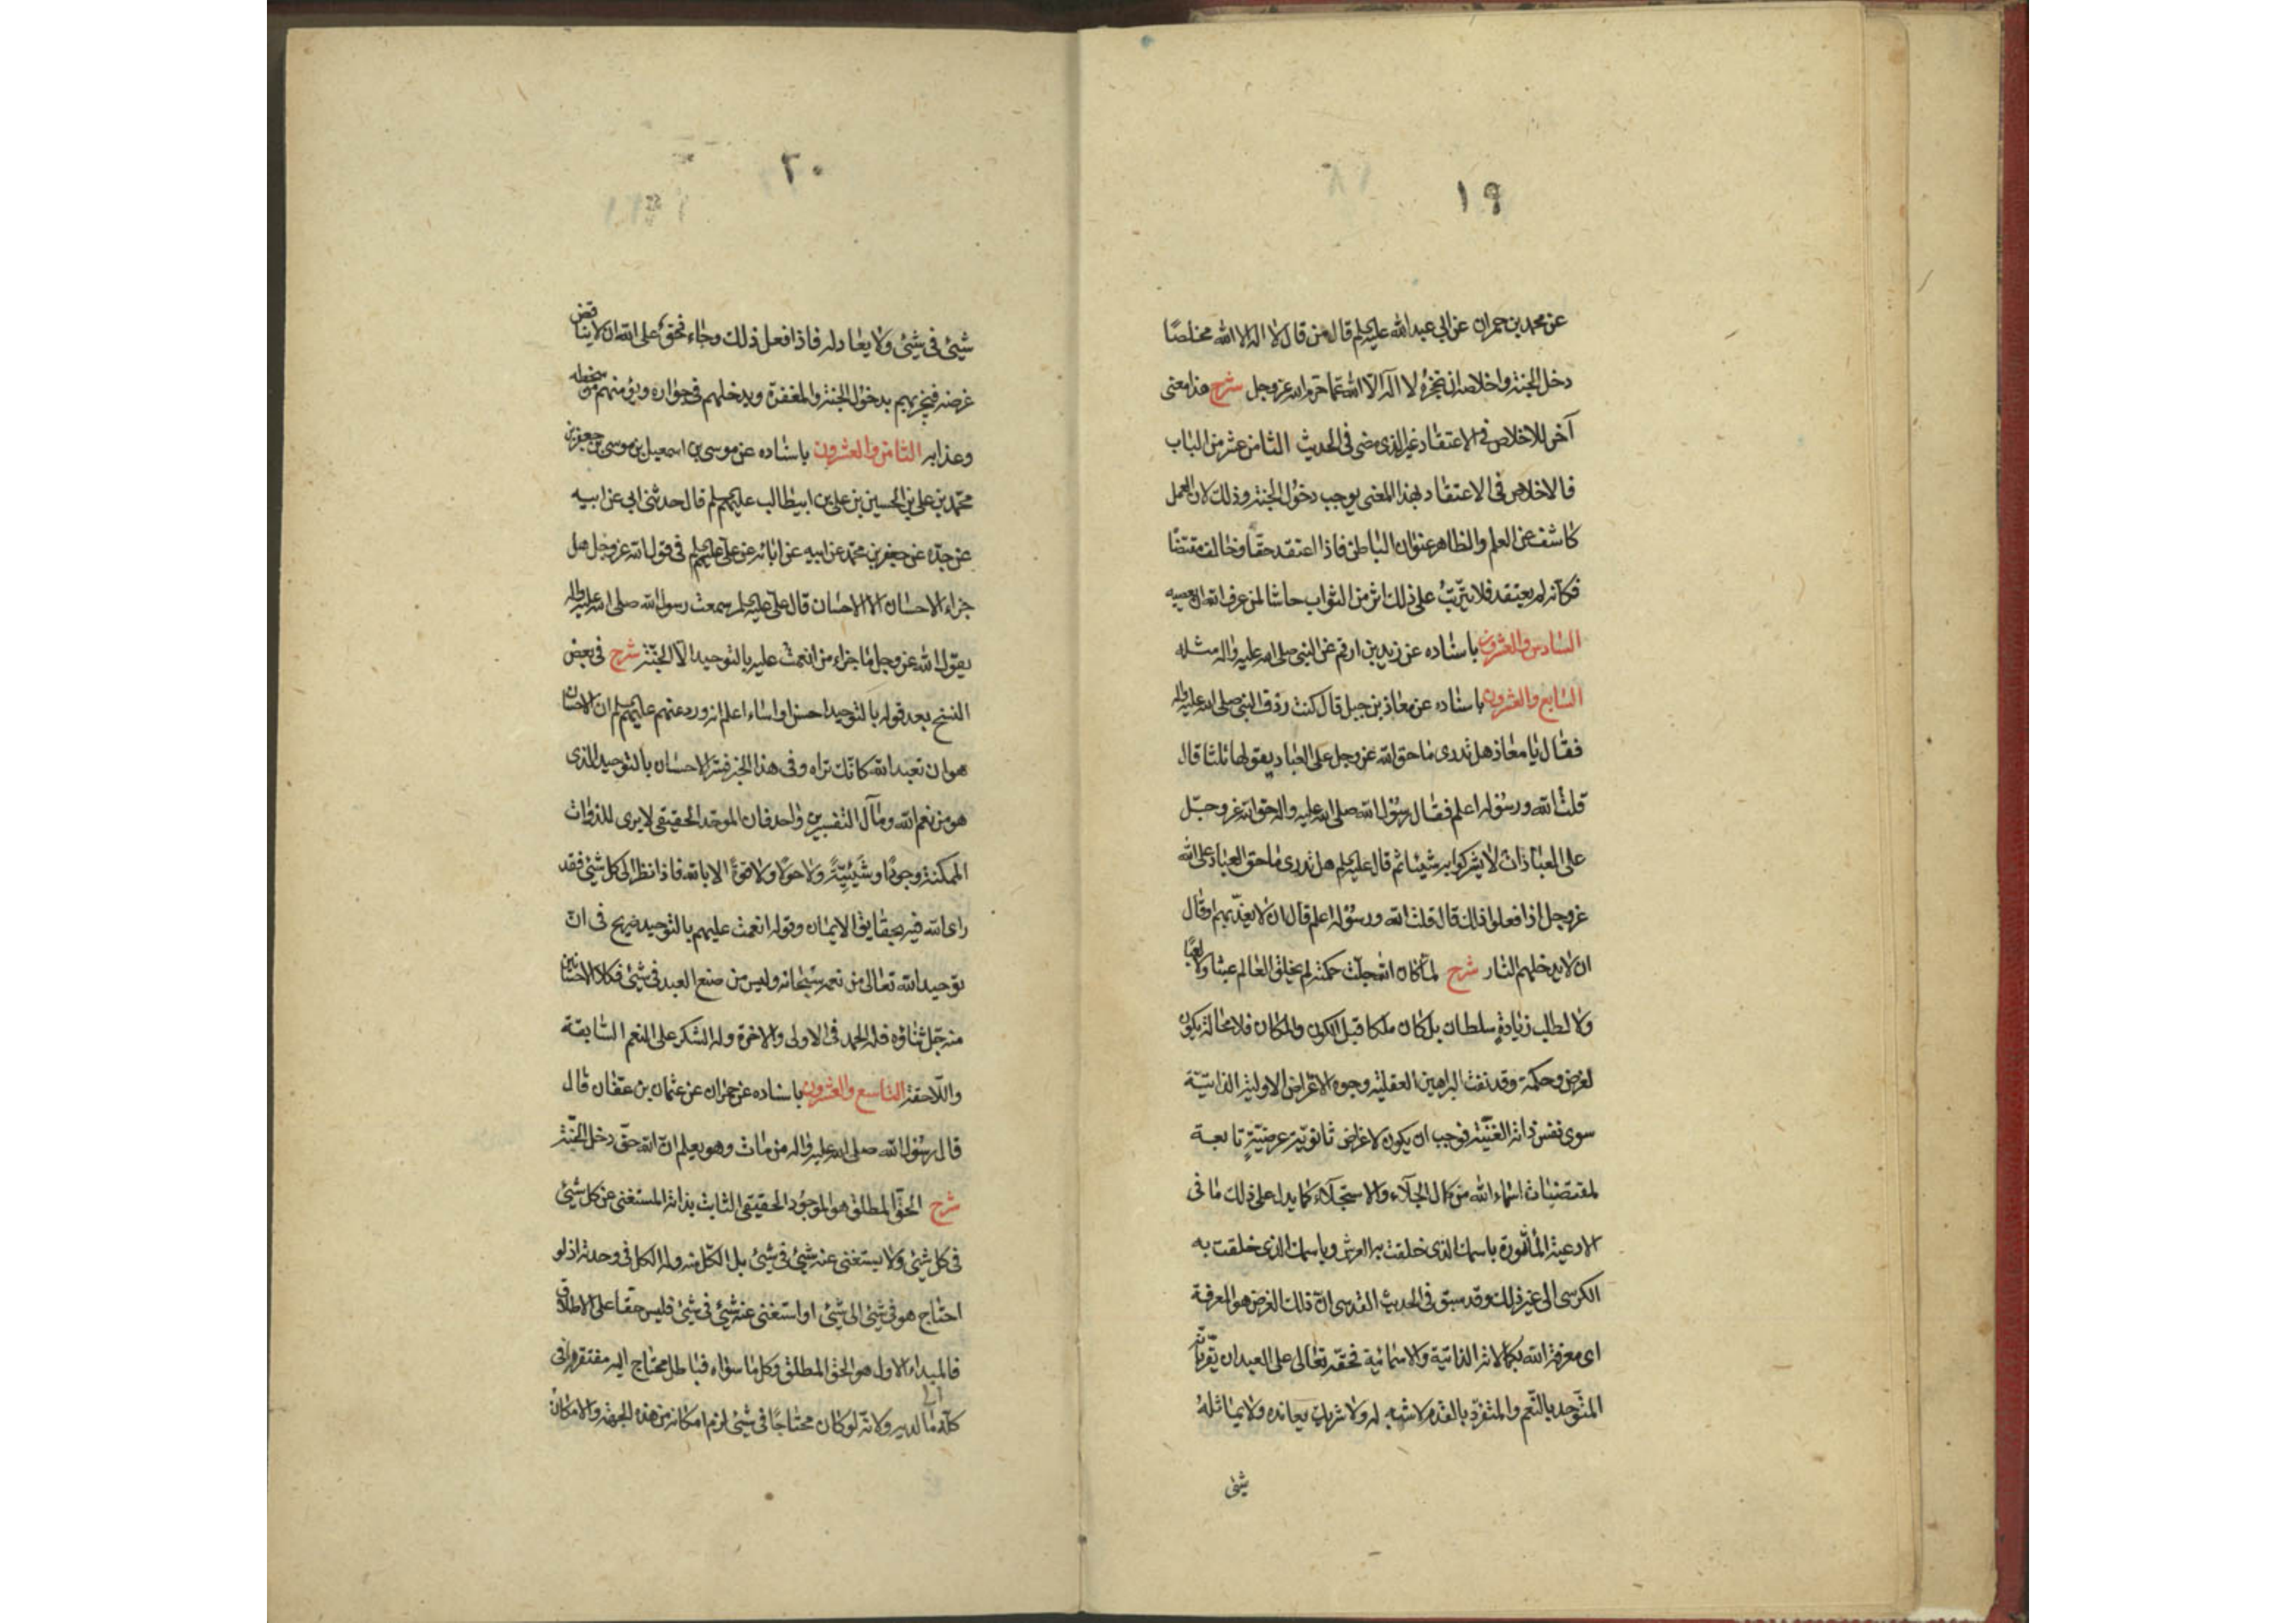 ١٩
عن محمد بن حمران عن ابي عبد الله عليه السلم قال من قال لا اله الا الله مخلصًا
دخل الجنة واخلاصه ان تحجزه لا اله الّا الله عمّا حرم الله عز وجل شرح هذا معنى
آخر للاخلاص في الاعتقاد غير الذى مضى فى الحديث الثامن عشر من الباب
فالاخلاص فى الاعتقاد بهذا المعنى يوجب دخول الجنة وذلك لان العمل
كاشف عن العلم والظاهر عنوان الباطن فاذا اعتقد حقّا وخالف مقتضاه
فكانه لم يعتقد فلا يترتّب على ذلك اثر من الثواب حاشا لمن عرف الله ان يعصيه
السادس والعشرون باسناده عن زيد بن ارقم عن النبى صلى الله عليه واله مثله
السابع والعشرون باسناده عن معاذ بن جبل قال كنت ردف النبى صلى الله عليه واله
فقال يا معاذ هل تدرى ما حق الله عز وجل على العباد يقولها ثلثا قال
قلت الله ورسوله اعلم فقال رسول الله صلى الله عليه واله حق الله عز وجل
على العباد ان لا يشركوا به شيئا ثم قال عليه السلم هل تدرى ما حق العباد على الله
عز وجل اذا فعلوا ذلك قال قلت الله ورسوله اعلم قال ان لا يعذّبهم او قال
ان لا يدخلهم النار شرح لما كان الله جلت حكمته لم يخلق العالم عبثا ولا لعبًا
ولا لطلب زيادة سلطان بل كان ملكا قبل الكون والمكان فلا محالة يكون
لغرض وحكمة وقد نفت البراهين العقلية وجوه الاغراض الاولية الذاتيّة
سوى نفس ذاته الغنيّة فوجب ان يكون لاغراض ثانويّة عرضيّة تابعة
لمقتضيات اسماء الله من كمال الجلاء والاستجلاء كما يدل على ذلك ما فى
الادعية المأثورة باسمك الذى خلقت به العرش وباسمك الذى خلقت به
الكرسى الى غير ذلك وقد سبق فى الحديث القدسى انّ ذلك الغرض هو المعرفة
اى معرفة الله بكمالاته الذاتية والاسمائية فحقّه تعالى على العبد ان يقرّ بانّه
المتوحد بالنّعم والمتفرّد بالقدم لا شبه له ولا شريك يعانده ولا يماثله
شئ
٢٠
شئ فى شئ ولا يعادله فاذا فعل ذلك وجاء فحقّ على الله ان لا يناقض
غرضه فيجزيهم بدخول الجنة والمغفرة ويدخلهم فى جواره ويؤمنهم من سخطه
وعذابه الثامن والعشرون باسناده عن موسى بن اسمعيل بن موسى بن جعفر بن
محمّد بن على بن الحسين بن على بن ابيطالب عليهم السلم قال حدثنى ابى عن ابيه
عن جدّه عن جعفر بن محمّد عن ابيه عن ابائه عن على عليهم السلم فى قول الله عز وجل هل
جزاء الاحسان الا الاحسان قال على عليه السلم سمعت رسول الله صلى الله عليه واله
يقول الله عز وجل ما جزاء من انعمت عليه بالتوحيد الّا الجنّة شرح فى بعض
النسخ بعد قوله بالتوحيد احسن او اساء اعلم انه ورد عنهم عليهم السلم ان الاحسان
هو ان تعبد الله كانّك تراه وفى هذا الخبر فسّر الاحسان بالتوحيد الذى
هو من نعم الله ومآل التفسيرين واحد فان الموحّد الحقيقى لا يرى للذوات
الممكنة وجودًا وشيئيّةً ولا حولًا ولا قوةً الا بالله فاذا نظر الى كل شئ فقد
راى الله فيه بحقايق الايمان وقوله انعمت عليهم بالتوحيد صريح فى انّ
توحيد الله تعالى من نعمه سبحانه وليس من صنع العبد فى شئ فكلا الاحسانين
منه جلّ ثناؤه فله الحمد فى الاولى والاخرة وله الشكر على النعم السّابقة
واللّاحقة التاسع والعشرون باسناده عن حمران عن عثمان بن عفّان قال
قال رسول الله صلى الله عليه واله من مات وهو يعلم انّ الله حقّ دخل الجنّة
شرح الحقّ المطلق هو الموجود الحقيقى الثابت بذاته المستغنى عن كل شئ
فى كل شئ ولا يستغنى عنه شئ فى شئ بل الكلّ منه وله الكل فى وحدته اذ لو
احتاج هو فى شئ الى شئ او استغنى عنه شئ فى شئ فليس حقّا على الاطلاق
فالمبداء الاول هو الحق المطلق وكل ما سواه فباطل محتاج اليه مفتقر فى
كلّه ما لديه ولانّه لو كان محتاجًا فى شئ لزم امكانه من هذه الجهة والامكان